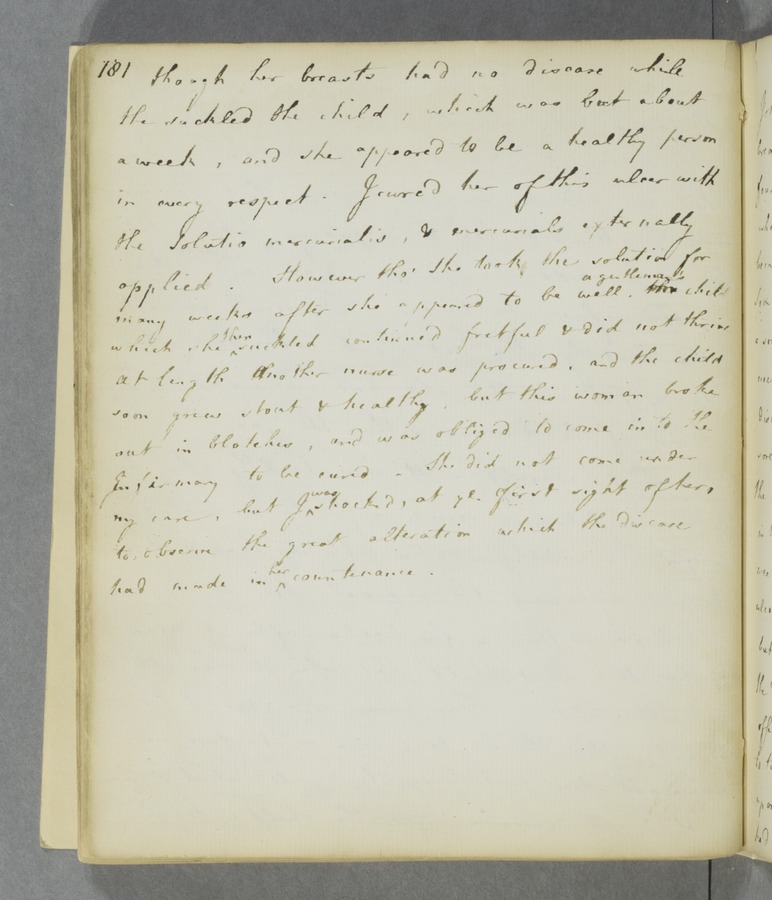 181 though her breasts had no disease while
she suckled the child, which was but about
a week, and she appeared to be a healthy person
in every respect. I cured her of this ulcer with
the Solutio mercurialis, & mercurials externally
applied. However tho' she took the solution for
many weeks after she appeared to be well, a gentleman's child
which she then suckled continued fretful & did not thrive
at length Another nurse was procured, and the child
soon grew stout & healthy, but this woman broke
out in blotches, and was obliged to come in to the
Infirmary to be cured - She did not come under
my care, but I was shocked, at ye first sight of her,
to observe the great alteration which the disease
had made in her countenance.